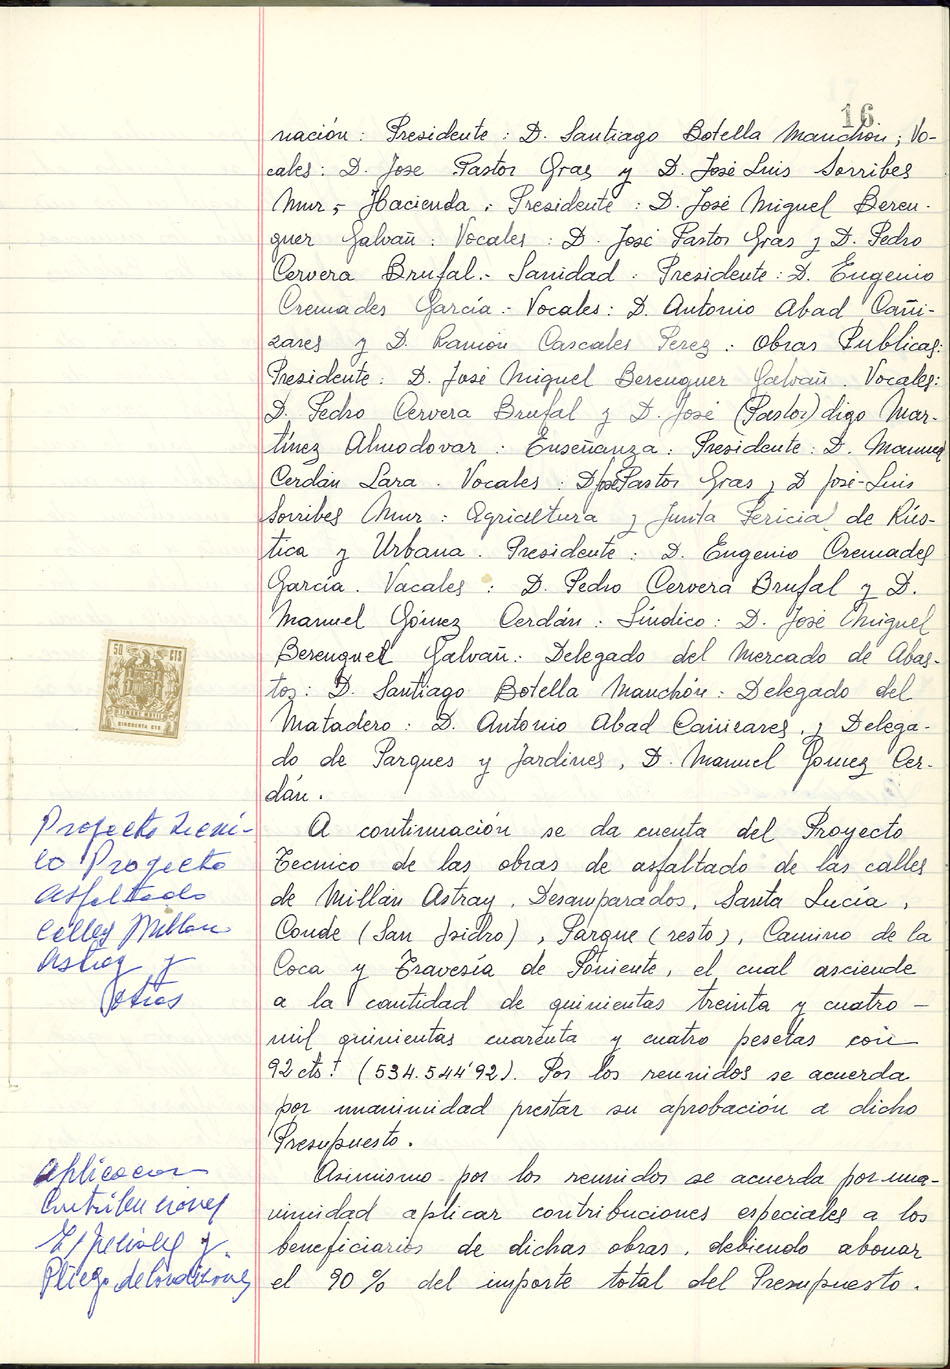 16
nación : Presidente : D. Santiago Botella Manchón ; Vo-
cales : D. Jose Pastor Gras y D. José Luis Sorribes
Mur ,- Hacienda . Presidente : D. José Miguel Beren-
guer Galvañ . Vocales : D. José Pastor Gras y D. Pedro
Cervera Brufal .- Sanidad . Presidente : D. Eugenio
Cremades García .- Vocales : D. Antonio Abad Cañi-
zares y D. Ramón Cascales Perez . Obras Publicas:
Presidente : D. José Miguel Berenguer Galvañ . Vocales:
D. Pedro Cervera Brufal y D. José (Pastor) digo Mar-
tínez Almodovar : Enseñanza . Presidente : D. Manuel
Cerdán Lara . Vocales : D José Pastor Gras y D José-Luis
Sorribes Mur : Agricltura y Junta Pericial de Rús-
tica y Urbana . Presidente : D. Eugenio Cremades
García . Vacales : D. Pedro Cervera Brufal y D.
Manuel Gómez Cerdán : Síndico : D. José Miguel
Berenguer Galvañ : Delegado del Mercado de Abas-
tos : D. Santiago Botella Manchón : Delegado del
Matadero : D. Antonio Abad Cañizares , y Delega-
do de Parques y Jardines , D. Manuel Gomez Cer-
dán .
50 CTS
TIMBRE MOVIL
CINCUENTA CTS
Proyecto Tecni-
co Proyecto
asfaltado
calles Millan
Astray y
otras
A continuación se da cuenta del Proyecto
Tecnico de las obras de asfaltado de las calles
de Millán Astray , Desamparados , Santa Lucía ,
Conde (San Isidro) , Parque (resto) , Camino de la
Coca y Travesía de Poniente , el cual asciende
a la cantidad de quinientas treinta y cuatro —
mil quinientas cuarenta y cuatro pesetas con —
92 cts! (534.544'92). Por los reunidos se acuerda
por unanimidad prestar su aprobación a dicho
Presupuesto .
Aplicacion
Contribuciones
Especiales y
Pliego de Condiciones
Asimismo por los reunidos se acuerda por una-
nimidad aplicar contribuciones especiales a los
beneficiarios de dichas obras , debiendo abonar
el 90 % del importe total del Presupuesto .